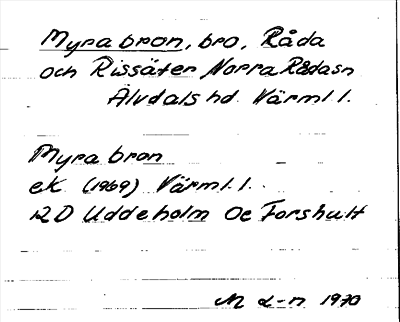 Myra bron, bro, Råda
och Rissäter Norra Rådasn
Älvdals hd Värml. l.
Myra bron
ek (1969) Värml. l.
12D Uddeholm 0e Forshult
M L-n 1970